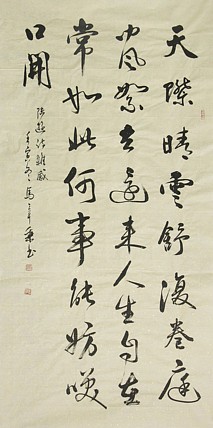 天際晴雲舒復卷庭
中風絮去還來人生自在
常如此何事能妨笑
口開
陸游詩雜感